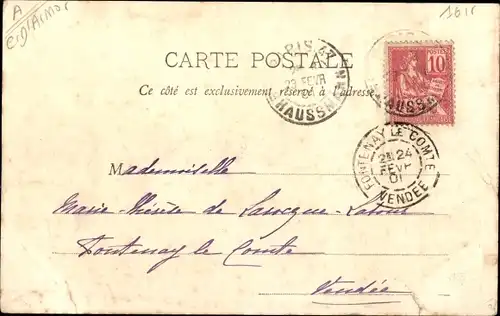 A
1615
CARTE POSTALE
Ce côté est exclusivement réservé à l'adresse
PARIS
23 FEVR
HAUSSM
10
POSTES
HAUSS
FONTENAY LE COMTE
24
FEVR
01
VENDÉE
Mademoiselle
Marie-Thérèse de Larocque-Latour
Fontenay le Comte
Vendée